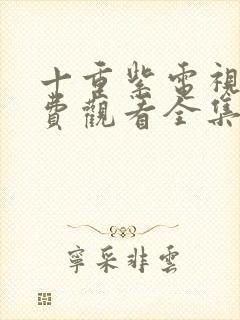 十重紫電視
費觀看全集
寧采非雲